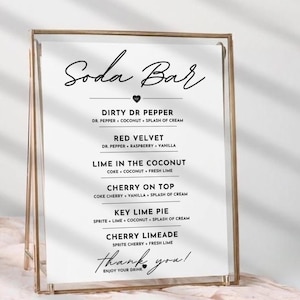 Soda Bar
DIRTY DR PEPPER
DR. PEPPER + COCONUT + SPLASH OF CREAM
RED VELVET
DR. PEPPER + RASPBERRY + VANILLA
LIME IN THE COCONUT
COKE + COCONUT + FRESH LIME
CHERRY ON TOP
COKE + CHERRY + VANILLA + SPLASH OF CREAM
KEY LIME PIE
SPRITE + LIME + COCONUT + SPLASH OF CREAM
CHERRY LIMEADE
SPRITE CHERRY + FRESH LIME
thank you!
ENJOY YOUR DRINK